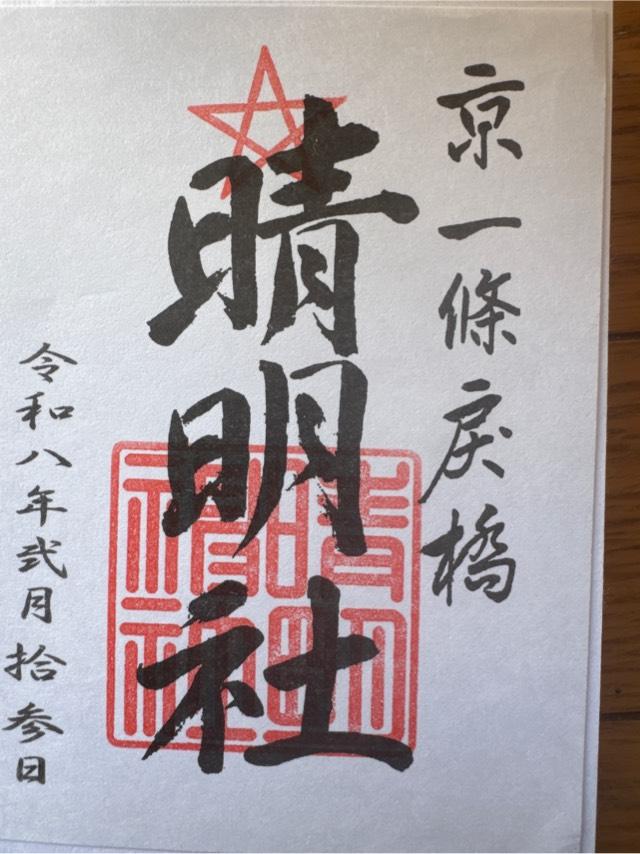 京一條戻橋
晴明社
令和八年弐月拾参日